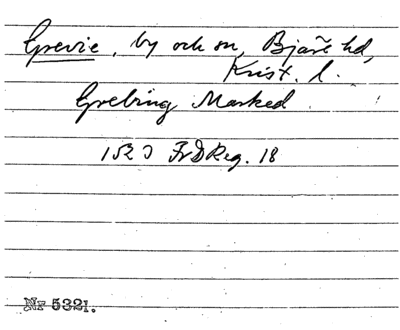 Grevie, by och sn, Bjäre hd,
Krist. l.
Grebing Marked
1523 FrDReg. 18
Nr 5321.